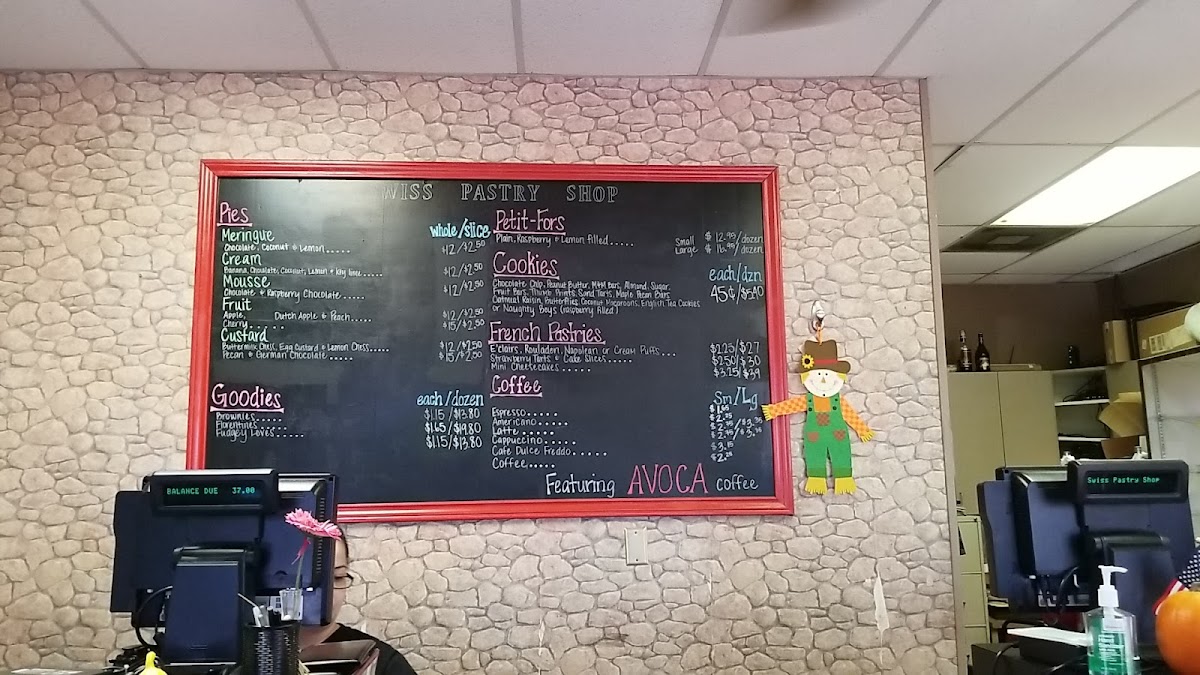 WISS PASTRY SHOP
Pies
whole/slice
Meringue
Chocolate, Coconut & Lemon..... $12/$2.50
Cream
Banana, Chocolate, Coconut, Lemon & Key lime..... $12/$2.50
Mousse
Chocolate & Raspberry Chocolate..... $12/$2.50
Fruit
Apple, Dutch Apple & Peach..... $12/$2.50
Cherry..... $15/$2.50
Custard
Buttermilk Chess, Egg Custard & Lemon Chess..... $12/$2.50
Pecan & German Chocolate..... $15/$2.50
Goodies
each/dozen
Brownies..... $1.15/$13.80
Florentines..... $1.65/$19.80
Fudgey Loves..... $1.15/$13.80
Petit-Fors
Plain, Raspberry & Lemon filled..... Small $12.99/dozen
Large $16.99/dozen
Cookies
each/dzn
Chocolate Chip, Peanut Butter, M&M Bars, Almond, Sugar, 45¢/$5.40
Fruit Bars, Thumb Prints, Sand Tarts, Maple Pecan Bars
Oatmeal Raisin, Butterflies, Coconut Macaroons, English Tea Cookies
or Naughty Boys (raspberry filled)
French Pastries
E'clairs, Rouladen, Napolean or Cream Puffs... $2.25/$27
Strawberry Tarts & Cake Slices..... $2.50/$30
Mini Cheesecakes..... $3.25/$39
Coffee
Sm/Lg
Espresso.....
Americano.....
Latte.....
Cappuccino.....
Cafe Dulce Freddo.....
Coffee.....
Featuring AVOCA coffee
BALANCE DUE 37.00
Swiss Pastry Shop